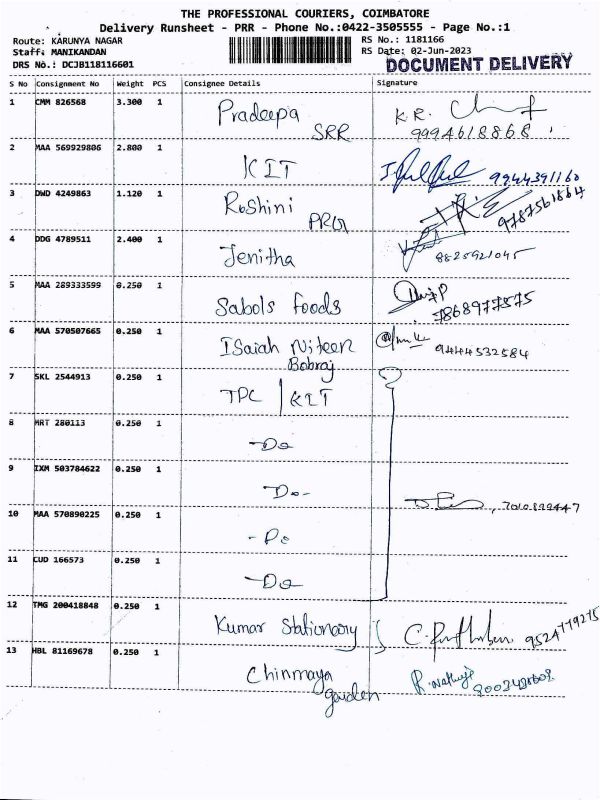 THE PROFESSIONAL COURIERS, COIMBATORE
Delivery Runsheet - PRR - Phone No.:0422-3505555 - Page No.:1
Route: KARUNYA NAGAR RS No.: 1181166
Staff: MANIKANDAN RS Date: 02-Jun-2023
DRS No.: DCJB118116601 DOCUMENT DELIVERY
S No Consignment No Weight PCS Consignee Details Signature
1 CMM 826568 3.300 1 Pradeepa SRR K.R. 9994618868
2 MAA 569929806 2.800 1 KIT 9944391160
3 DWD 4249863 1.120 1 Roshini PRG 9787561864
4 DDG 4789511 2.400 1 Jenitha 8825921045
5 MAA 289333599 0.250 1 Sabols foods 7868977575
6 MAA 570507665 0.250 1 Isaiah Niteen Bobraj 9444532584
7 SKL 2544913 0.250 1 TPC / KIT
8 MRT 280113 0.250 1 -Do
9 IXM 503784622 0.250 1 Do-
10 MAA 570890225 0.250 1 -Do
11 CUD 166573 0.250 1 -Do
12 TMG 200418848 0.250 1 Kumar Stationary 9524779275
13 HBL 81169678 0.250 1 Chinmaya garden